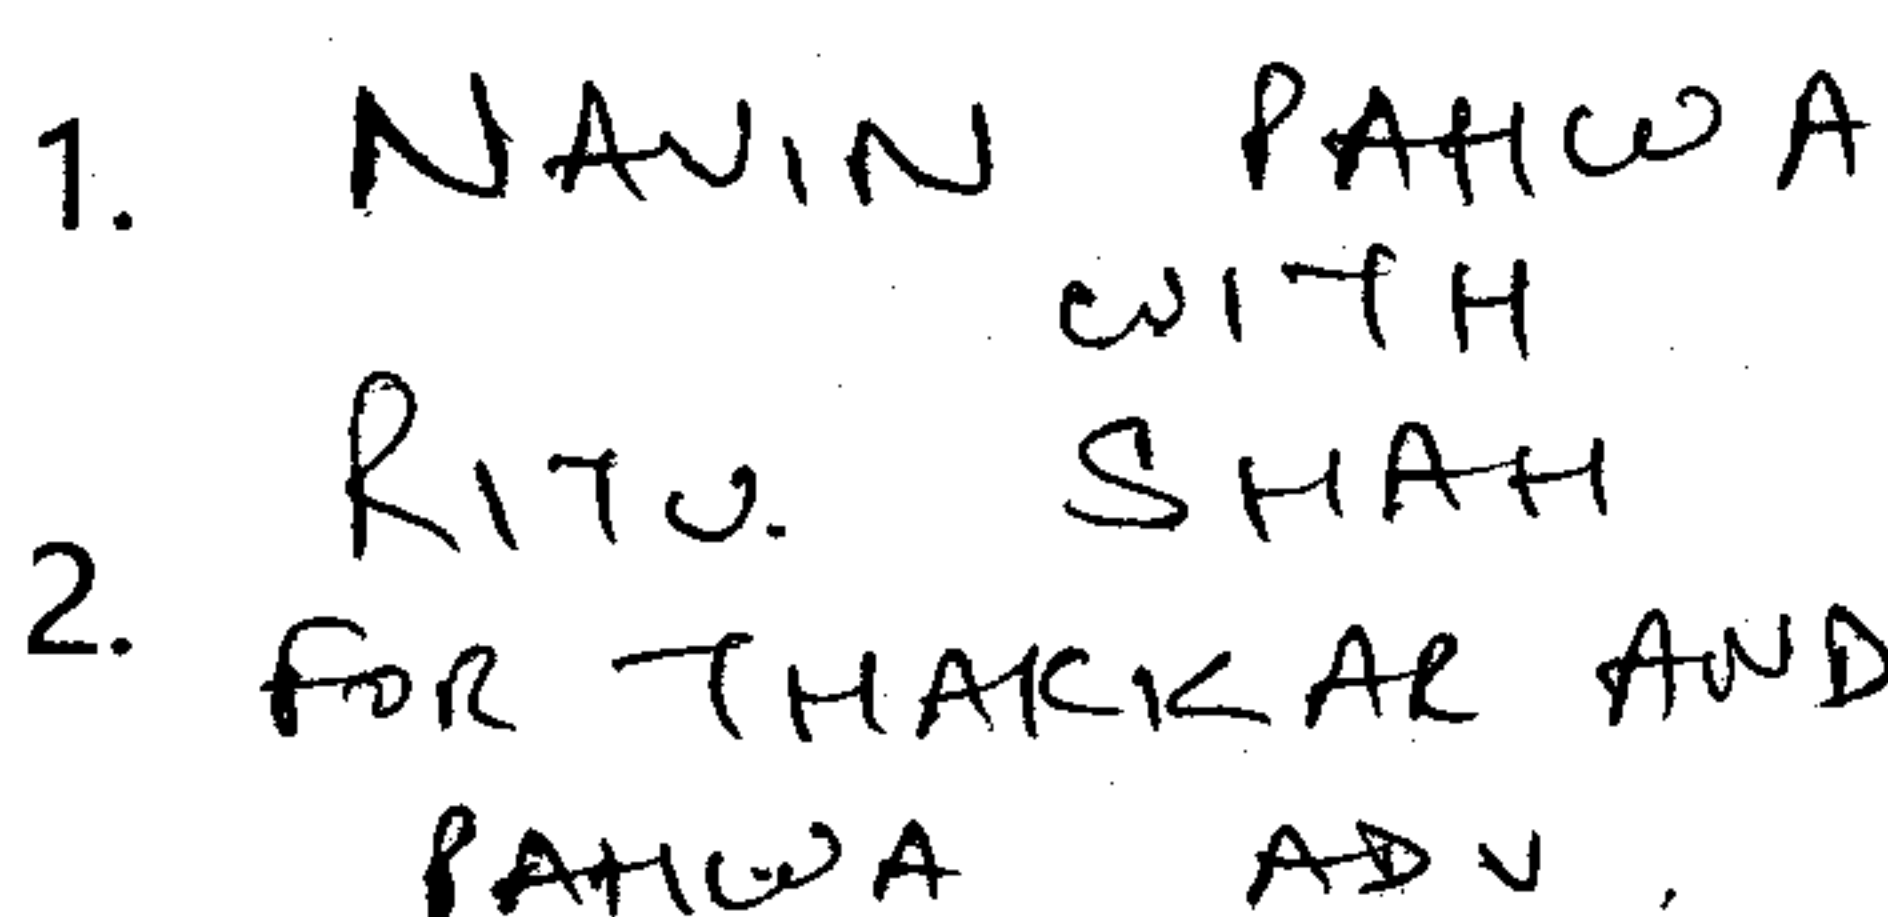 1. NAVIN PAHWA
WITH
RITU. SHAH
2.
FOR THAKKAR AND
PAHWA ADV.